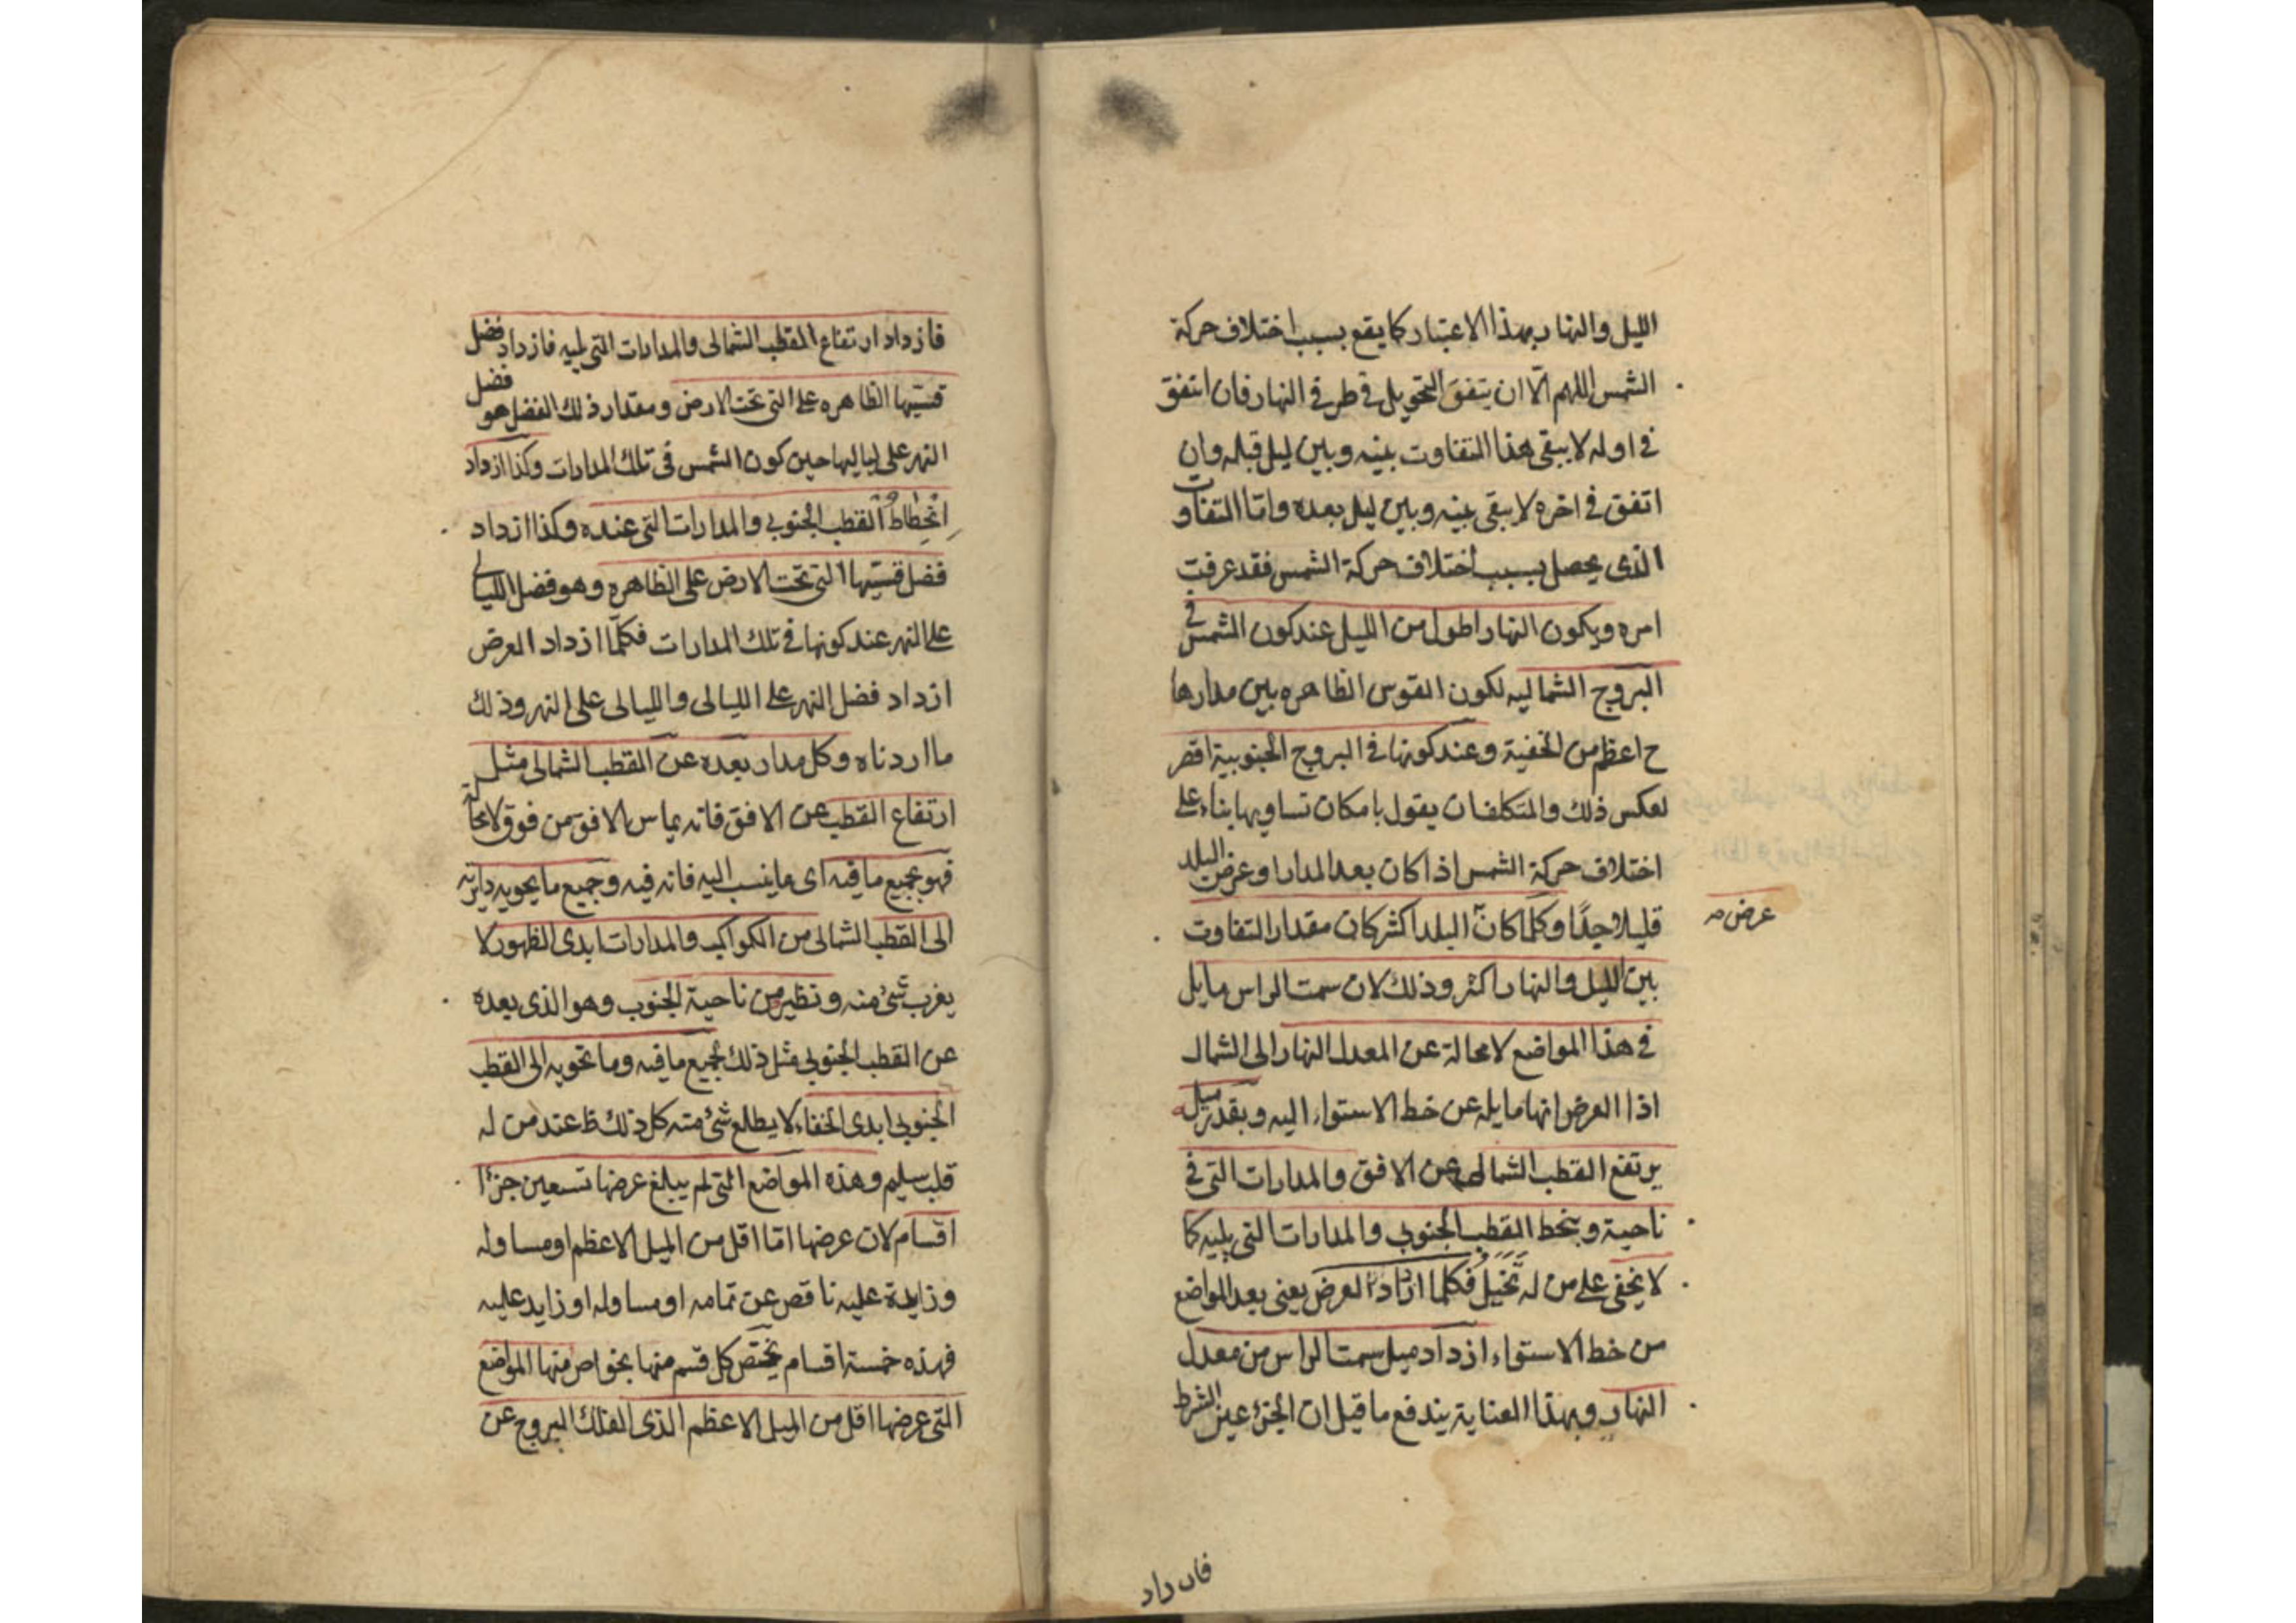 الليل والنهار بهذا الاعتبار كما يقع بسبب اختلاف حركة
الشمس اللهم الّا ان يتفق التحويل فى طرفى النهار فان اتفق
فى اوله لا يبقى هذا التفاوت بينه وبين ليل قبله وان
اتفق فى اخره لا يبقى بينه وبين ليل بعده واما التفاوت
الذى يحصل بسبب اختلاف حركة الشمس فقد عرفت
امره ويكون النهار اطول من الليل عند كون الشمس فى
البروج الشماليه لكون القوس الظاهره بين مدارها
ح اعظم من الخفية وعند كونها فى البروج الجنوبية اقصر
لعكس ذلك والمتكلفان يقول بامكان تساويها بناء على
اختلاف حركة الشمس اذا كان بعد المدار او عرض البلد
قليلا جدًا وكلما كان البلد اكثر كان مقدار التفاوت
عرض
بين الليل والنهار اكثر وذلك لان سمت الراس مايل
فى هذا المواضع لا محالة عن المعدل النهار الى الشمال
اذا العرض انها مايلة عن خط الاستواء اليه وبقدر ميله
يرتفع القطب الشمالى عن الافق والمدارات التى فى
ناحية وينحط القطب الجنوبى والمدارات التى يليه كما
لا يخفى على من له تخيل فكلما ازداد العرض يعنى بعد المواضع
من خط الاستواء ازداد ميل سمت الراس من معدل
النهار وبهذا العناية يندفع ما قيل ان الجزء عين الشرط
فازداد
فازداد ارتفاع القطب الشمالى والمدارات التى يليه فازداد فضل
قسيها الظاهره على التى تحت الارض ومقدار ذلك الفضل هو فضل
النهر على لياليها حين كون الشمس فى تلك المدارات وكذا ازداد
انحطاط القطب الجنوبى والمدارات التى عنده وكذا ازداد
فضل قسيها التى تحت الارض على الظاهره وهو فضل الليالى
على النهر عند كونها فى تلك المدارات فكلّما ازداد العرض
ازداد فضل النهر على الليالى والليالى على النهر وذلك
ما اردناه وكل مدار بعده عن القطب الشمالى مثل
ارتفاع القطب عن الافق فانه يماس الافق من فوق لا محالة
فهو بجميع ما فيه اى ما ينسب اليه فانه فيه وجميع ما يحويه دايرته
الى القطب الشمالى من الكواكب والمدارات ابدى الظهور لا
يغرب شئ منه ونظيره من ناحية الجنوب وهو الذى بعده
عن القطب الجنوبى مثل ذلك بجميع ما فيه وما تحويه الى القطب
الجنوبى ابدى الخفاء لا يطلع شئ منه كل ذلك ظ عند من له
قلب سليم وهذه المواضع التى لم يبلغ عرضها تسعين جزءا
اقسام لان عرضها اما اقل من الميل الاعظم او مساو له
وزايدة عليه ناقص عن تمامه او مساو له او زايد عليه
فهذه خمسة اقسام يختص كل قسم منها بخواص منها المواضع
التى عرضها اقل من الميل الاعظم الذى الفلك البروج عن